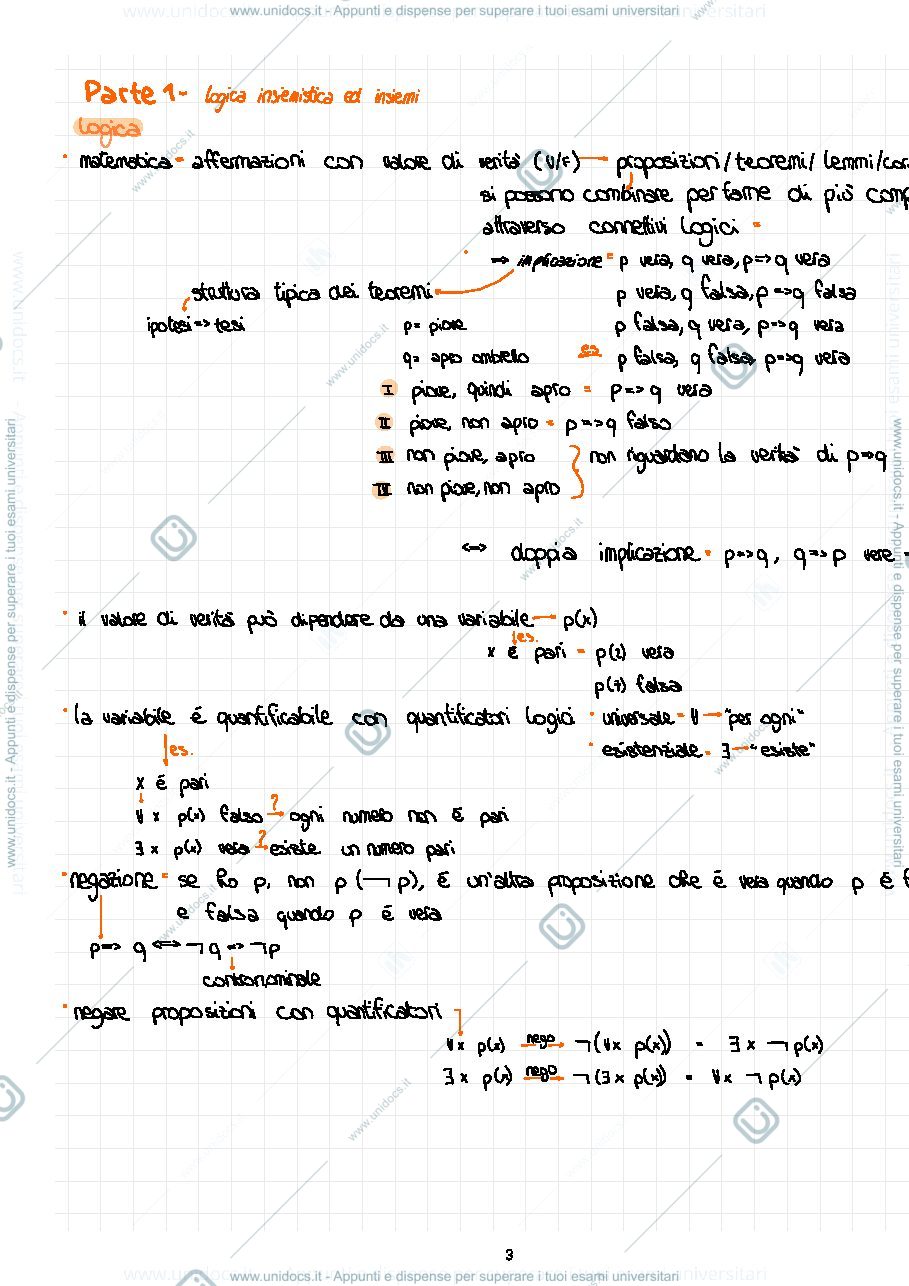 www.unidocs.it - Appunti e dispense per superare i tuoi esami universitari
Parte 1- logica insiemistica ed insiemi
logica
• matematica = affermazioni con valore di verità (V/F) → proposizioni/teoremi/lemmi/
si possono combinare per farne di più
attraverso connettivi logici =
• => implicazione = p vera, q vera, p=>q vera
struttura tipica dei teoremi p vera, q falsa, p=>q falsa
ipotesi=>tesi p= piove p falsa, q vera, p=>q vera
q= apro ombrello es p falsa, q falsa, p=>q vera
I piove, quindi apro = p=>q vera
II piove, non apro = p=>q falso
III non piove, apro } non riguardano la verità di p=>q
IV non piove, non apro
<=> doppia implicazione = p=>q, q=>p vere =
• il valore di verità può dipendere da una variabile → p(x)
↓es.
x é pari = p(2) vera
p(7) falsa
• la variabile é quantificabile con quantificatori logici • universale = ∀ → "per ogni"
↓es. • esistenziale = ∃ → "esiste"
x é pari
∀x p(x) falso →? ogni numero non é pari
∃x p(x) vera →? esiste un numero pari
• negazione = se ho p, non p (¬p), é un'altra proposizione che é vera quando p é f
e falsa quando p é vera
p=> q <=> ¬q => ¬p
contronominale
• negare proposizioni con quantificatori
∀x p(x) nego → ¬(∀x p(x)) = ∃x ¬p(x)
∃x p(x) nego → ¬(∃x p(x)) = ∀x ¬p(x)
3
www.unidocs.it - Appunti e dispense per superare i tuoi esami universitari